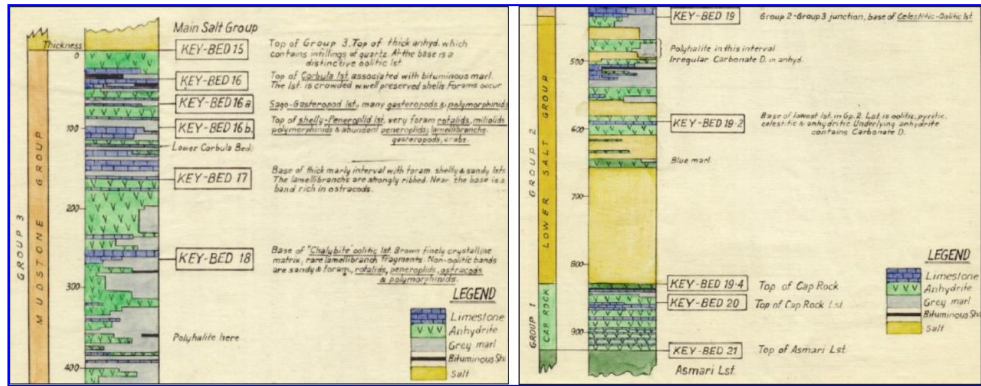 Main Salt Group
Thickness
0
KEY-BED 15
Top of Group 3. Top of thick anhyd. which
contains infillings of quartz. At the base is a
distinctive oolitic lst.
KEY-BED 16
Top of Corbula lst. associated with bituminous marl.
The lst. is crowded w well preserved shells. Forams occur
KEY-BED 16a
Sago-Gasteropod lst., many gasteropods & polymorphinids
100
KEY-BED 16b
Top of shelly-Peneroplid lst. very foram rotalids, miliolids
polymorphinids & abundant peneroplids; lamellibranchs
gasteropods, crabs.
Lower Corbula Bed
KEY-BED 17
Base of thick marly interval with foram. shelly & sandy lsts
The lamellibranchs are strongly ribbed. Near the base is a
band rich in ostracods.
200
KEY-BED 18
Base of "Chalybite" oolitic lst. Brown finely crystalline
matrix, rare lamellibranch fragments. Non-oolitic bands
are sandy & foram, rotalids, peneroplids, ostracods
& polymorphinids.
300
Polyhalite here
400
GROUP 3
MUDSTONE GROUP
LEGEND
Limestone
Anhydrite
Grey marl
Bituminous Sh
Salt
KEY-BED 19
Group 2-Group 3 junction, base of Celestitic-Oolitic lst
Polyhalite in this interval
Irregular Carbonate D. in anhyd.
500
KEY-BED 19-2
Base of lowest lst. in Gp. 2. Lst. is oolitic, pyritic,
celestitic & anhydritic Underlying anhydrite
contains Carbonate D.
600
Blue marl
700
800
KEY-BED 19-4
Top of Cap Rock
KEY-BED 20
Top of Cap Rock Lst.
900
KEY-BED 21
Top of Asmari Lst.
Asmari Lst.
GROUP 2
LOWER SALT GROUP
GROUP 1
CAP ROCK
LEGEND
Limestone
Anhydrite
Grey marl
Bituminous Sha
Salt